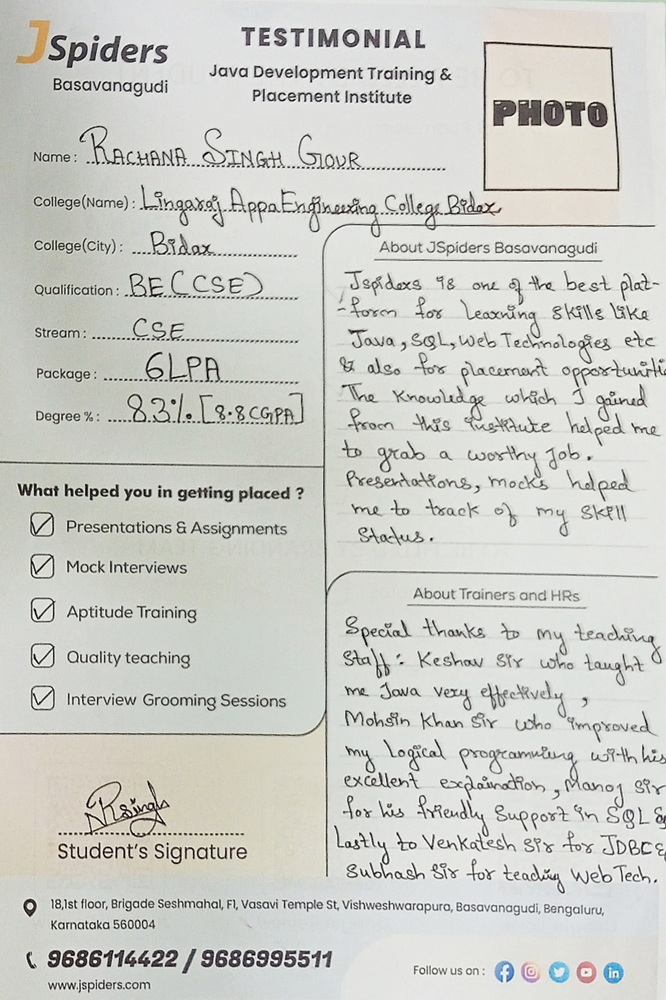 JSpiders
Basavanagudi
TESTIMONIAL
Java Development Training &
Placement Institute
PHOTO
Name : RACHANA SINGH GOUR
College(Name) : Lingaraj Appa Engineering College Bidar
College(City) : Bidar
Qualification : BE(CSE)
Stream : CSE
Package : 6LPA
Degree % : 83% [8.8CGPA]
What helped you in getting placed ?
Presentations & Assignments
Mock Interviews
Aptitude Training
Quality teaching
Interview Grooming Sessions
Rsingh
Student's Signature
About JSpiders Basavanagudi
Jspiders is one of the best plat-
-form for learning skills like
Java, SQL, Web Technologies etc
& also for placement opportunitie
The knowledge which I gained
from this institute helped me
to grab a worthy job.
Presentations, mocks helped
me to track of my skill
Status.
About Trainers and HRs
Special thanks to my teaching
Staff: Keshav Sir who taught
me Java very effectively,
Mohsin Khan Sir who improved
my logical programming with his
excellent explaination, Manoj Sir
for his friendly Support in SQL &
Lastly to Venkatesh Sir for JDBC &
Subhash Sir for teading Web Tech.
18,1st floor, Brigade Seshmahal, F1, Vasavi Temple St, Vishweshwarapura, Basavanagudi, Bengaluru,
Karnataka 560004
9686114422 / 9686995511
www.jspiders.com
Follow us on :